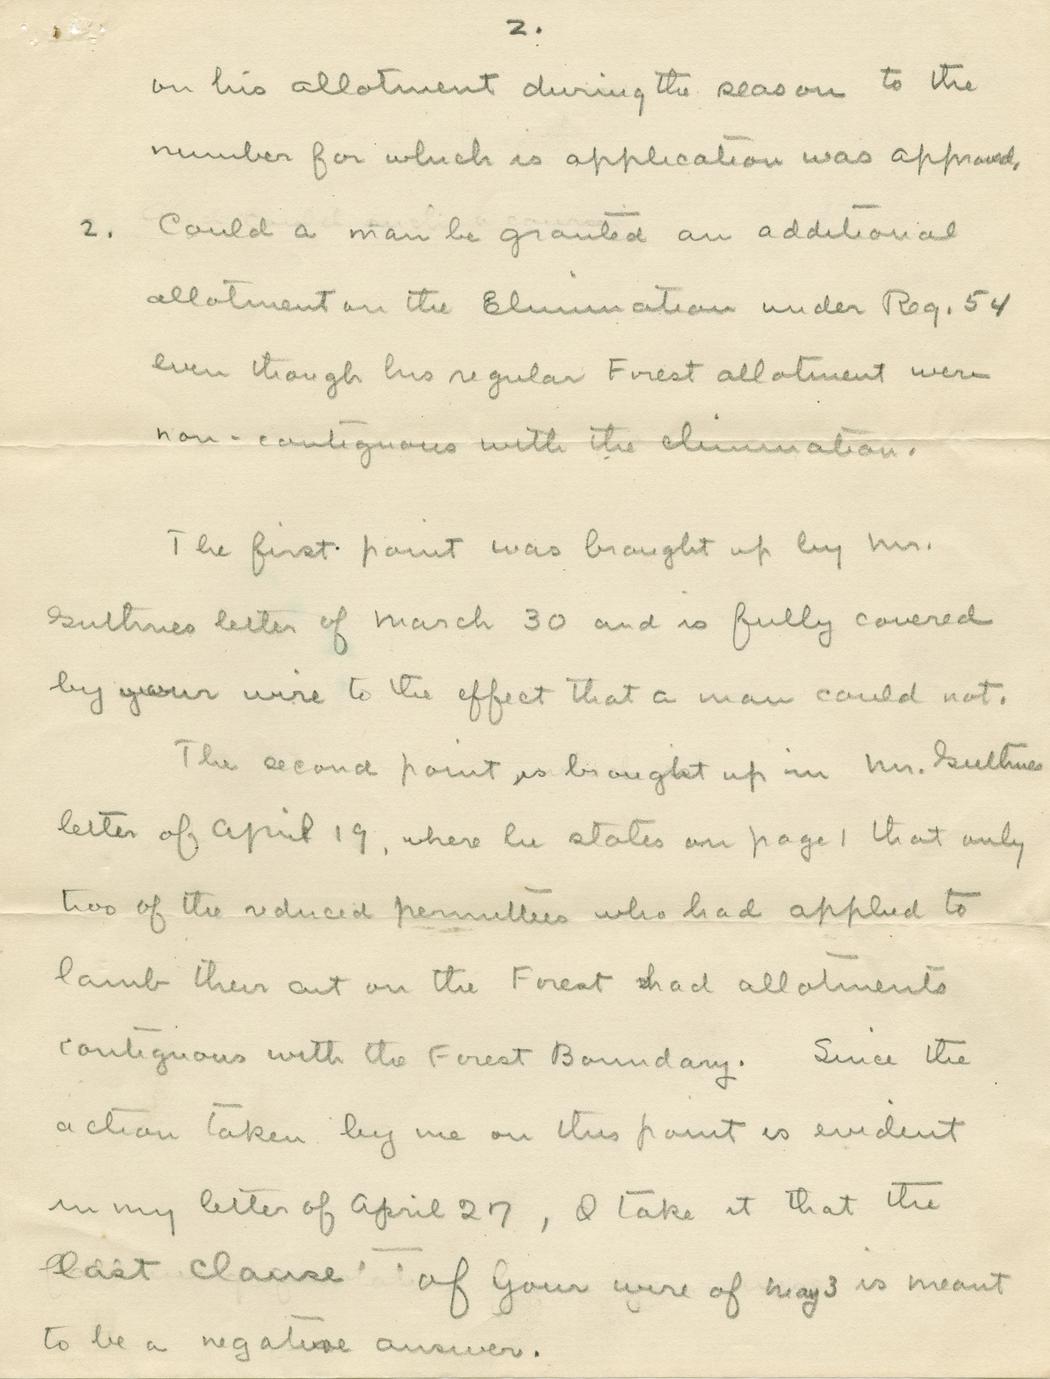 2.
on his allotment during the season to the
number for which is application was approved.
2. Could a man be granted an additional
allotment on the Elimination under Reg. 54
even though his regular Forest allotment were
non-contiguous with the elimination.
The first point was brought up by Mr.
Guthries letter of March 30 and is fully covered
by your wire to the effect that a man could not.
The second point is brought up in Mr. Guthries
letter of April 19, where he states on page 1 that only
two of the reduced permittees who had applied to
lamb their out on the Forest had allotments
contiguous with the Forest Boundary. Since the
action taken by me on this point is evident
in my letter of April 27, I take it that the
last clause of your wire of May 3 is meant
to be a negative answer.